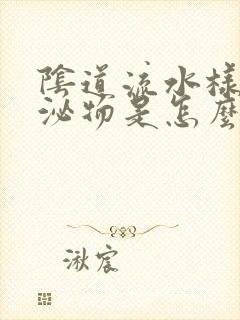 陰道流水樣
泌物是怎麼
湫宸